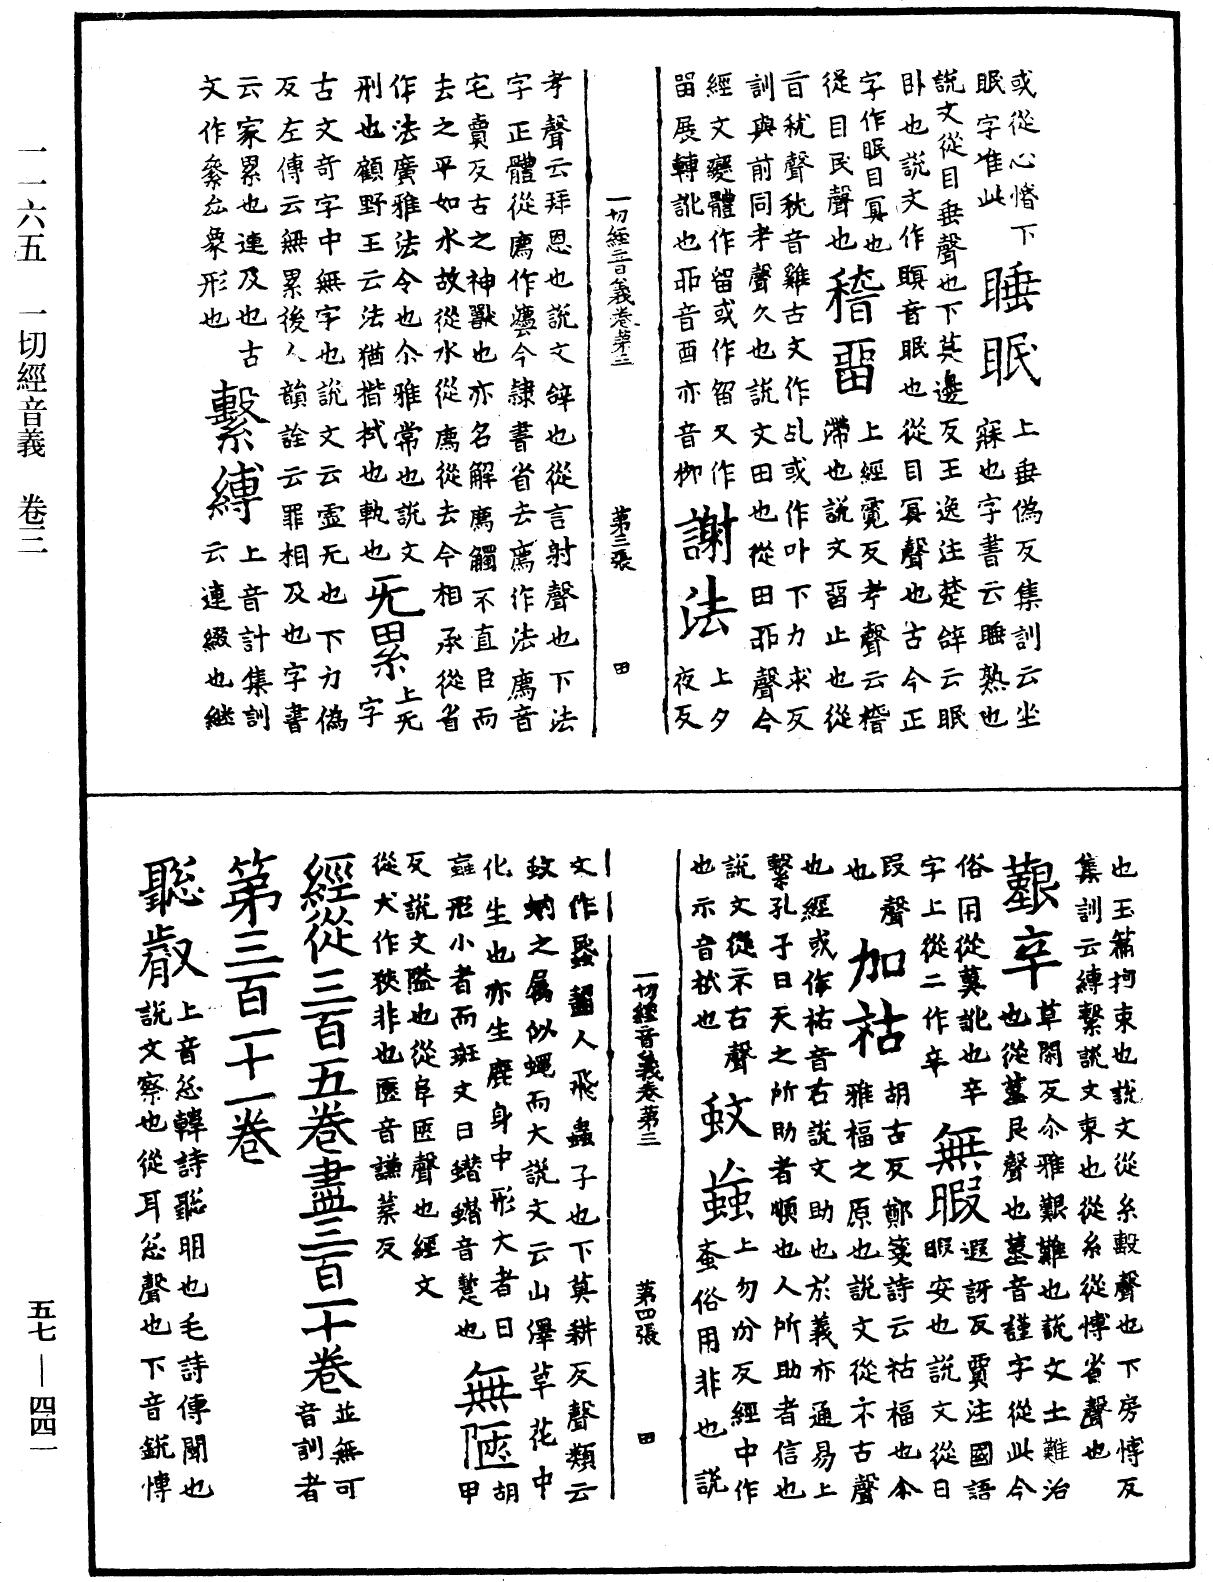 一一六五　一切經音義　卷三
或從心惛下
眠字准此
睡眠
上垂偽反集訓云坐
寐也字書云睡熟也
說文從目垂聲也下莫邊反王逸注楚辭云眠
卧也說文作瞑音眠也從目冥聲也古今正
字作眠目冥也
從目民聲也
稽畱
上經霓反考聲云稽
滯也說文畱止也從
旨秇聲秇音雞古文作乩或作卟下力求反
訓與前同考聲久也說文田也從田丣聲今
經文變體作留或作畄又作
畱展轉訛也丣音酉亦音栁
謝法
上夕
夜反
一切經音義卷第三　第三張　田
考聲云拜恩也說文辝也從言射聲也下法
字正體從廌作灋今隸書省去廌作法廌音
宅賣反古之神獸也亦名解廌觸不直臣而
去之平如水故從水從廌從去今相承從省
作法廣雅法令也尒雅常也說文
刑也顧野王云法猶揩栻也軌也
无累
上无
字
古文奇字中無字也說文云虛无也下力偽
反左傳云無累後人韻詮云罪相及也字書
云家累也連及也古
文作絫厽象形也
繫縛
上音計集訓
云連綴也継
也玉篇拘束也說文從糸毄聲也下房愽反
集訓云縛繫說文束也從糸從愽省聲也
艱辛
草閑反尒雅艱難也說文土難治
也從堇艮聲也堇音謹字從此今
俗用從莫訛也辛
字上從二作辛
無暇
遐訝反賈注國語
暇安也說文從日
叚聲
也
加祜
胡古反鄭箋詩云祜福也尒
雅福之原也說文從示古聲
也經或作祐音右說文助也於義亦通易上
繫孔子曰天之所助者順也人所助者信也
說文從示右聲
也示音栻也
蚊蝱
上勿分反經中作
蚉俗用非也說
一切經音義卷第三　第四張　田
文作蟁齧人飛蟲子也下莫耕反聲類云
蚊蚋之属似蝇而大說文云山澤草花中
化生也亦生鹿身中形大者曰
蝱形小者而斑文曰蠽蠽音蹔也
無陿
胡
甲
反說文隘也從阜匧聲也經文
從犬作狹非也匧音謙葉反
經從三百五卷盡三百一十卷
並無可
音訓者
第三百一十一卷
聽叡
上音忩韓詩聡明也毛詩傳聞也
說文察也從耳忩聲也下音銳愽
五七—四四一